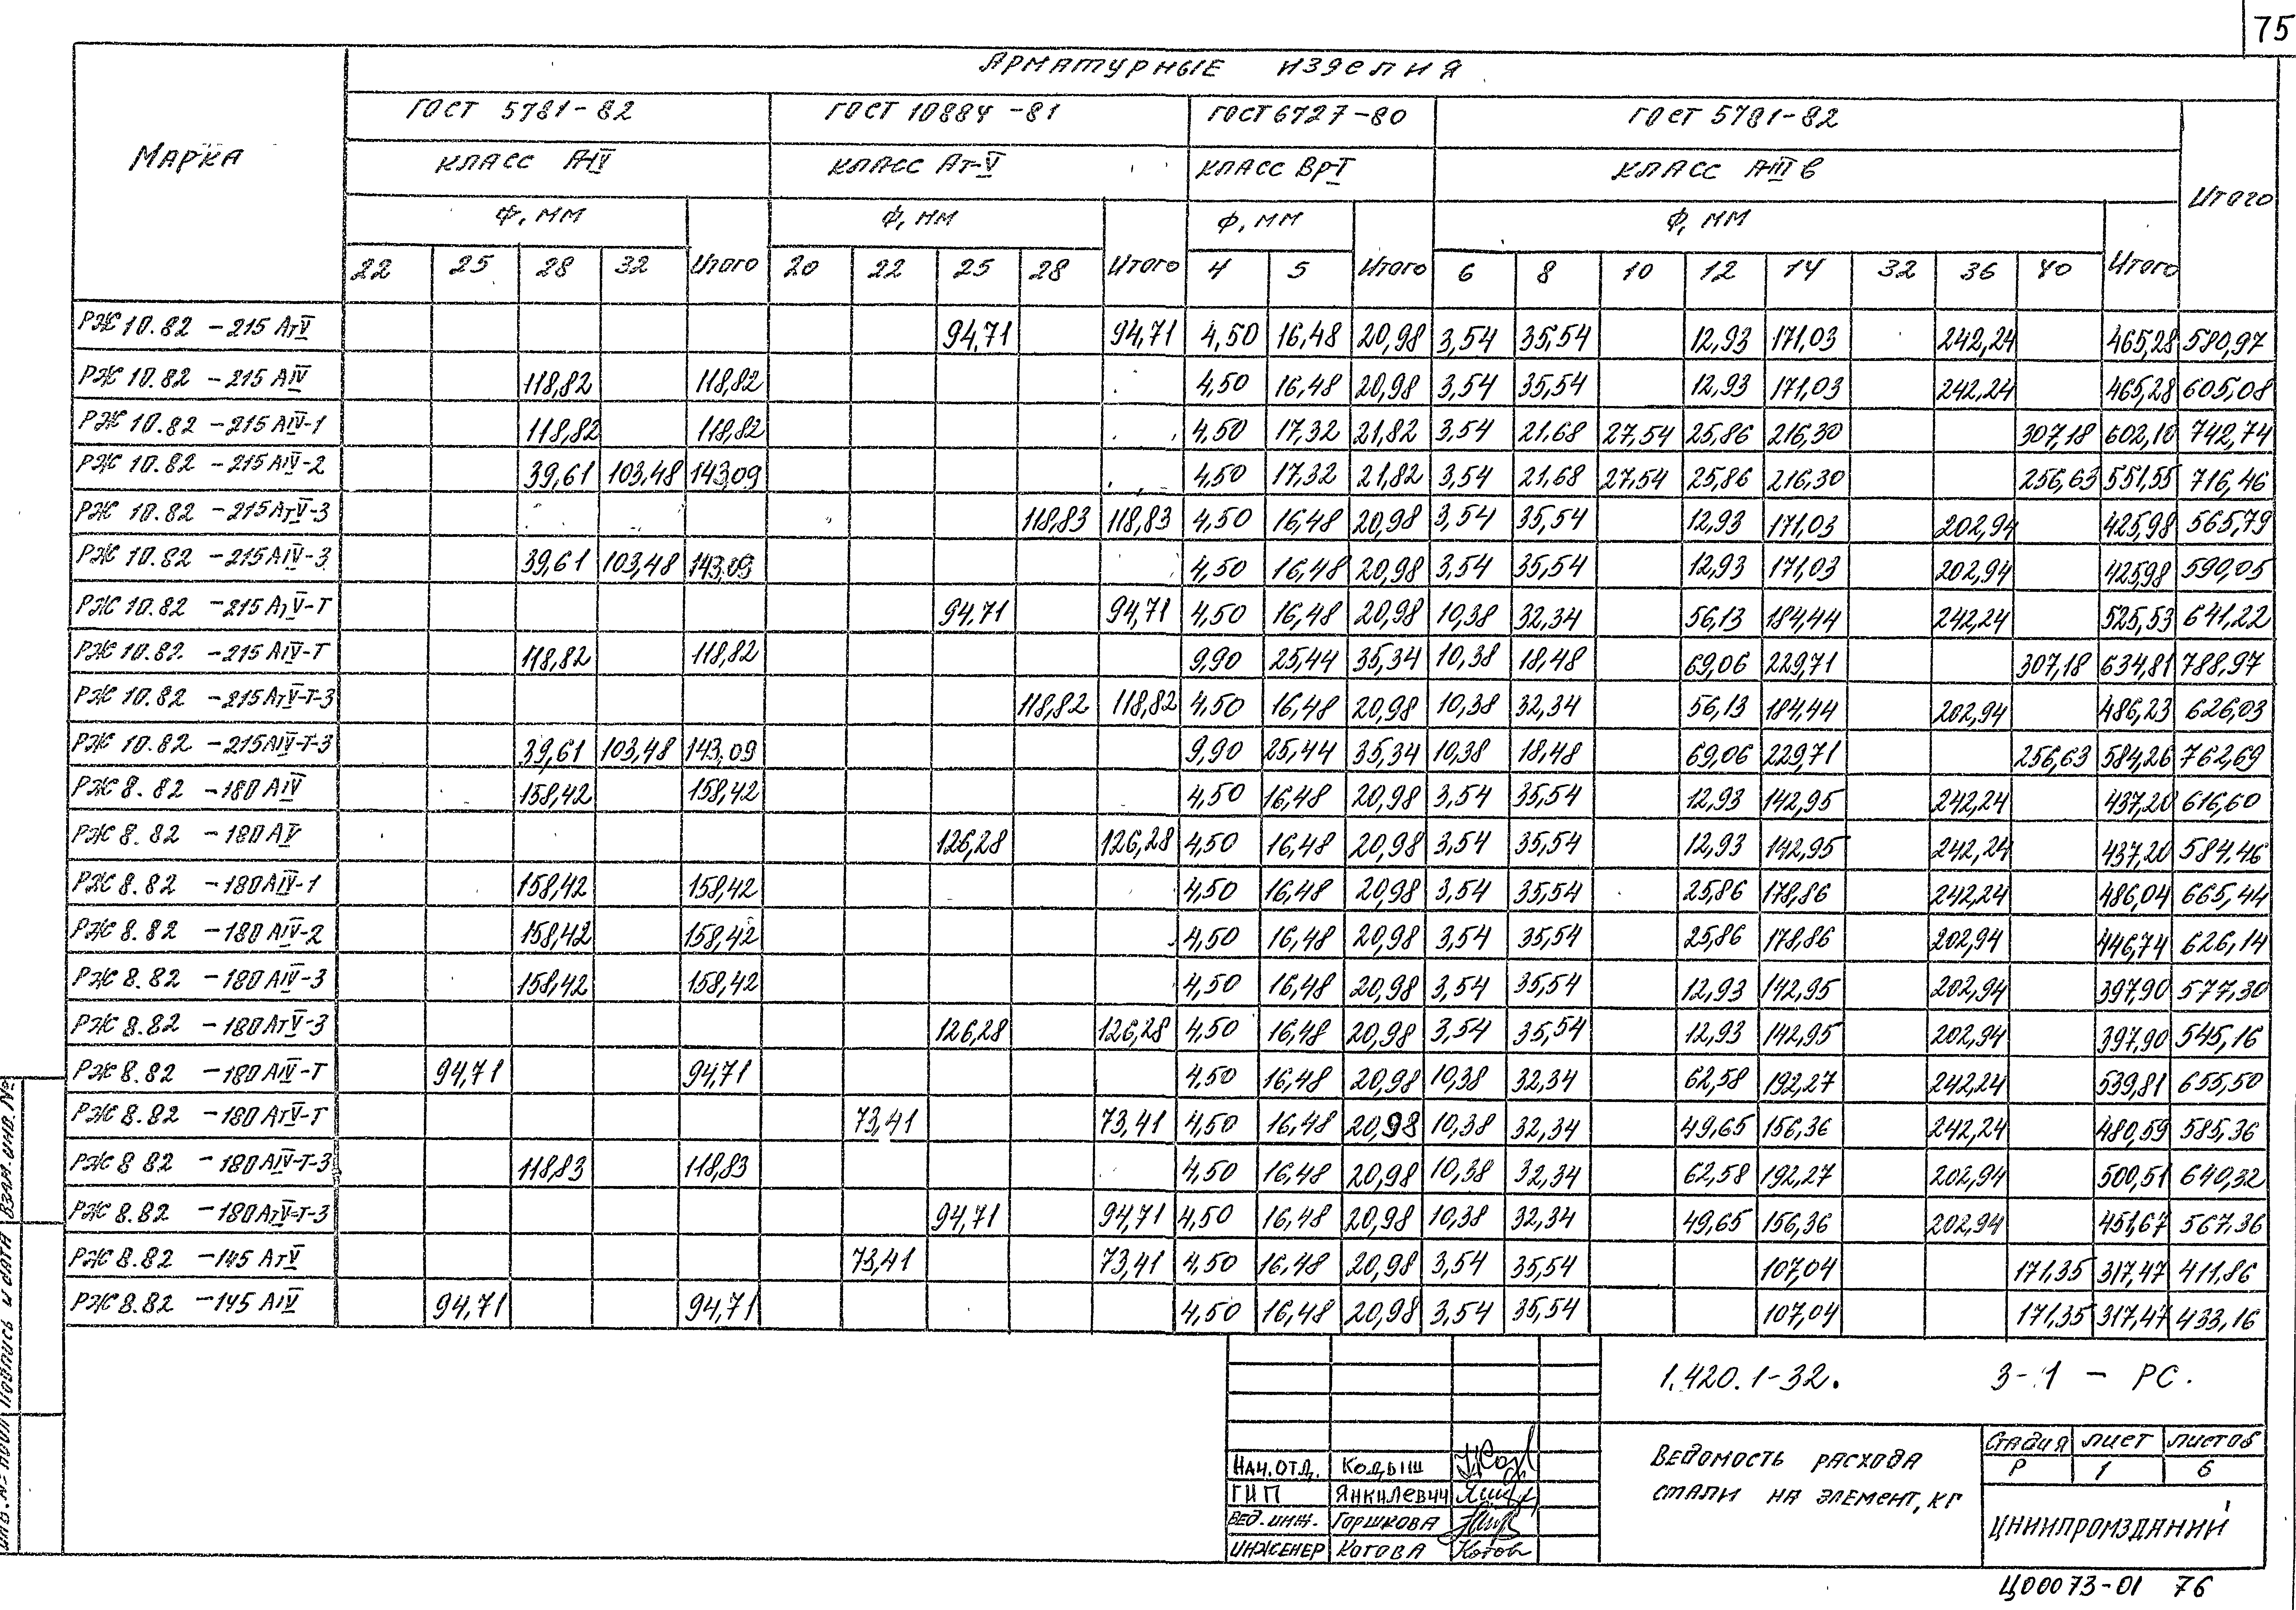 75
Арматурные изделия
Марка
ГОСТ 5781-82 ГОСТ 10884-81 ГОСТ 6727-80 ГОСТ 5781-82 Итого
класс А-IV класс Ат-V класс Вр-I класс А-III в
Ф, мм Итого Ф, мм Итого Ф, мм Итого Ф, мм Итого
22 25 28 32 20 22 25 28 4 5 6 8 10 12 14 32 36 40
РЖ 10.82 -215 АтV 94,71 94,71 4,50 16,48 20,98 3,54 35,54 12,93 171,03 242,24 465,28 580,97
РЖ 10.82 -215 АIV 118,82 118,82 4,50 16,48 20,98 3,54 35,54 12,93 171,03 242,24 465,28 605,08
РЖ 10.82 -215 АIV-1 118,82 118,82 4,50 17,32 21,82 3,54 21,68 27,54 25,86 216,30 307,18 602,10 742,74
РЖ 10.82 -215 АIV-2 39,61 103,48 143,09 4,50 17,32 21,82 3,54 21,68 27,54 25,86 216,30 256,63 551,55 716,46
РЖ 10.82 -215 АтV-3 118,83 118,83 4,50 16,48 20,98 3,54 35,54 12,93 171,03 202,94 425,98 565,79
РЖ 10.82 -215 АIV-3 39,61 103,48 143,09 4,50 16,48 20,98 3,54 35,54 12,93 171,03 202,94 425,98 590,05
РЖ 10.82 -215 АтV-Т 94,71 94,71 4,50 16,48 20,98 10,38 32,34 56,13 184,44 242,24 525,53 641,22
РЖ 10.82 -215 АIV-Т 118,82 118,82 9,90 25,44 35,34 10,38 18,48 69,06 229,71 307,18 634,81 788,97
РЖ 10.82 -215 АтV-Т-3 118,82 118,82 4,50 16,48 20,98 10,38 32,34 56,13 184,44 202,94 486,23 626,03
РЖ 10.82 -215 АIV-Т-3 39,61 103,48 143,09 9,90 25,44 35,34 10,38 18,48 69,06 229,71 256,63 584,26 762,69
РЖ 8.82 -180 АIV 158,42 158,42 4,50 16,48 20,98 3,54 35,54 12,93 142,95 242,24 437,20 616,60
РЖ 8.82 -180 АV 126,28 126,28 4,50 16,48 20,98 3,54 35,54 12,93 142,95 242,24 437,20 584,46
РЖ 8.82 -180 АIV-1 158,42 158,42 4,50 16,48 20,98 3,54 35,54 25,86 178,86 242,24 486,04 665,44
РЖ 8.82 -180 АIV-2 158,42 158,42 4,50 16,48 20,98 3,54 35,54 25,86 178,86 202,94 446,74 626,14
РЖ 8.82 -180 АIV-3 158,42 158,42 4,50 16,48 20,98 3,54 35,54 12,93 142,95 202,94 397,90 577,30
РЖ 8.82 -180 АтV-3 126,28 126,28 4,50 16,48 20,98 3,54 35,54 12,93 142,95 202,94 397,90 545,16
РЖ 8.82 -180 АIV-Т 94,71 94,71 4,50 16,48 20,98 10,38 32,34 62,58 192,27 242,24 539,81 655,50
РЖ 8.82 -180 АтV-Т 73,41 73,41 4,50 16,48 20,98 10,38 32,34 49,65 156,36 242,24 480,59 585,36
РЖ 8 82 -180 АIV-Т-3 118,83 118,83 4,50 16,48 20,98 10,38 32,34 62,58 192,27 202,94 500,51 640,32
РЖ 8.82 -180 АтV-Т-3 94,71 94,71 4,50 16,48 20,98 10,38 32,34 49,65 156,36 202,94 451,67 567,36
РЖ 8.82 -145 АтV 73,41 73,41 4,50 16,48 20,98 3,54 35,54 107,04 171,35 317,47 411,86
РЖ 8.82 -145 АIV 94,71 94,71 4,50 16,48 20,98 3,54 35,54 107,04 171,35 317,47 433,16
Взам. инв. №
Подпись и дата
1.420.1-32. 3-1 - РС.
Нач. отд. Кодыш
ГИП Янкилевич
Вед. инж. Горшкова
Инженер Котова Котов
Ведомость расхода
стали на элемент, кг
Стадия Лист Листов
Р 1 6
ЦНИИпромзданий
Ц00073-01 76